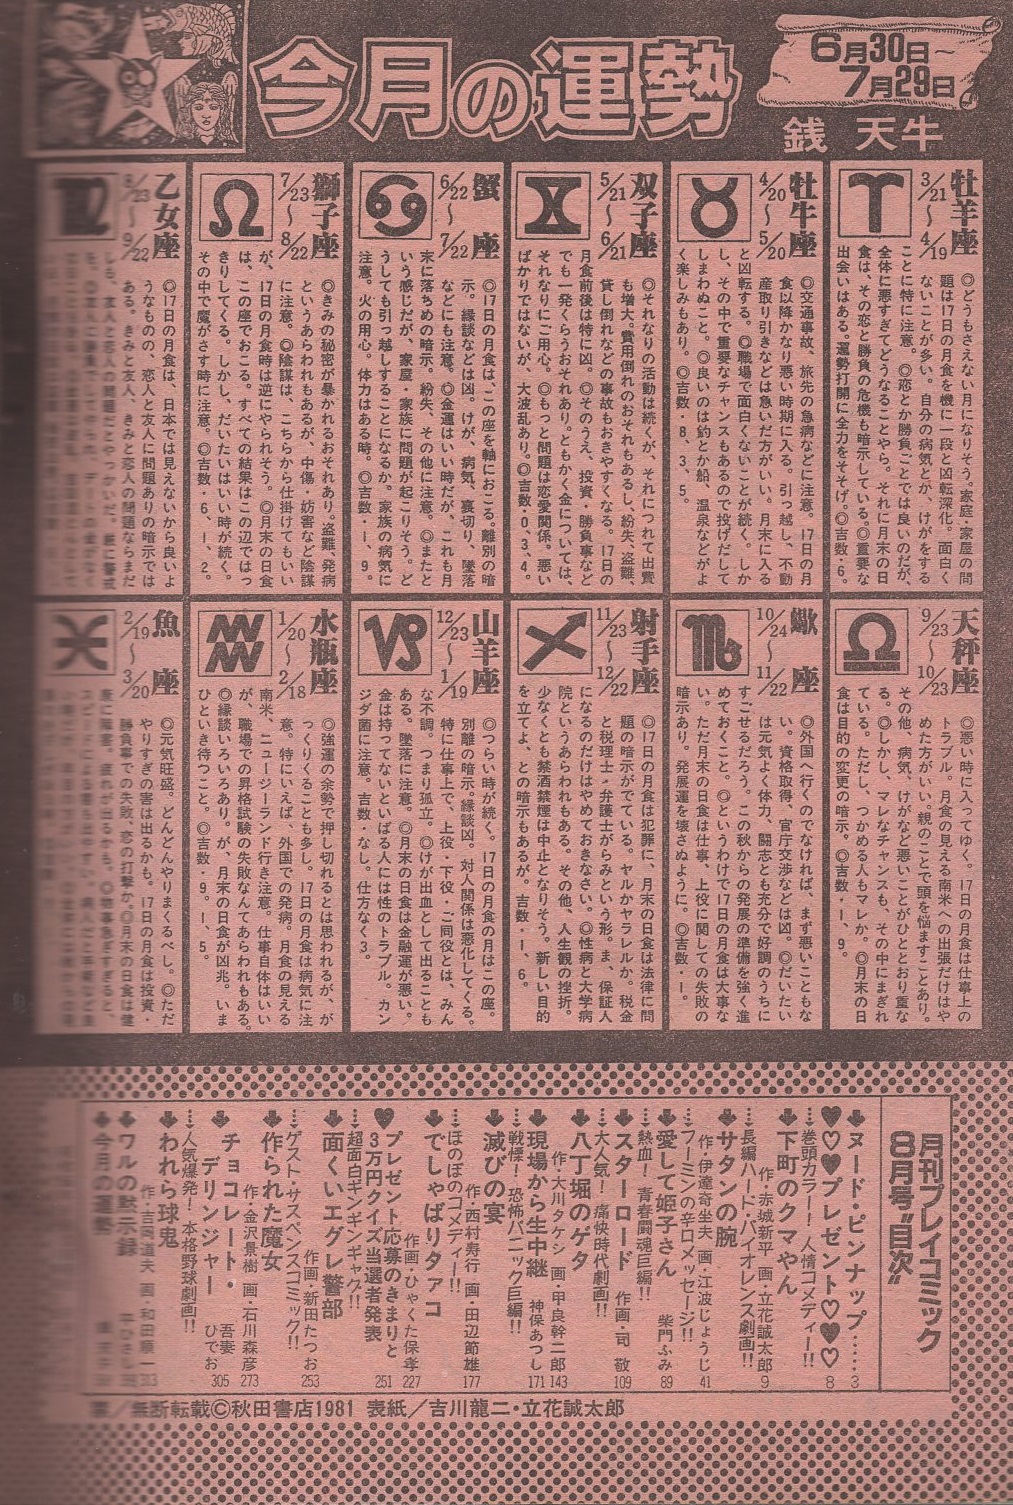 今月の運勢
6月30日~
7月29日
銭 天牛
牡羊座
3/21~4/19
◎どうもさえない月になりそう。家庭・家屋の問
題は17日の月食を機に一段と凶転深化。面白く
ないことが多い。自分の病気とか、けがをする
ことに特に注意。◎恋とか勝負ごとでは良いのだが、
全体に悪すぎてどうなることやら。それに月末の日
食は、その恋と勝負の危機も暗示している。◎重要な
出会いはある。運勢打開に全力をそそげ。◎吉数・6。
牡牛座
4/20~5/20
◎交通事故、旅先の急病などに注意。17日の月
食以降かなり悪い時期に入る。引っ越し、不動
産取り引きなどは急いだ方がいい。月末に入る
と凶転する。◎職場で面白くないことが続く。しか
し、その中で重要なチャンスもあるので投げだして
しまわぬこと。◎良いのは釣とか船、温泉などがよ
く楽しみもあり。◎吉数・8、3、5。
双子座
5/21~6/21
◎それなりの活動は続くが、それにつれて出費
も増大。費用倒れのおそれもあるし、紛失、盗難、
貸し倒れなどの事故もおきやすくなる。17日の
月食前後は特に凶。◎そのうえ、投資・勝負事など
でも一発くらうおそれあり。ともかく金については、
それなりにご用心。◎もっと問題は恋愛関係。悪い
ばかりではないが、大波乱あり。◎吉数・0、3、4。
蟹座
6/22~7/22
◎17日の月食は、この座を軸におこる。離別の暗
示。縁談などは凶。けが、病気、裏切り、墜落
などにも注意。◎金運はいい時だが、これも月
末に落ちめの暗示。紛失、その他に注意。◎またと
いう感じだが、家屋・家族に問題が起こりそう。ど
うしても引っ越しすることになるか。家族の病気に
注意。火の用心。体力はある時。◎吉数・1、9。
獅子座
7/23~8/22
◎きみの秘密が暴かれるおそれあり。盗難、発病
というあらわれもあるが、中傷・妨害など陰謀
に注意。◎陰謀は、こちらから仕掛けてもいい
が、17日の月食時は逆にやられそう。◎月末の日食
は、この座でおこる。すべての結果はこの辺ではっ
きりしてくる。しかし、だいたいはいい時が続く。
その中で魔がさす時に注意。◎吉数・6、1、2。
乙女座
8/23~9/22
◎17日の月食は、日本では見えないから良いよ
うなものの、恋人と友人に問題ありの暗示では
ある。きみと友人、きみと恋人の問題ならまだ
しも、友人と恋人の問題だとやっかいだ。
天秤座
9/23~10/23
◎悪い時に入ってゆく。17日の月食は仕事上の
トラブル。月食の見える南米への出張だけはや
めた方がいい。親のことで頭を悩ますことあり。
その他、病気、けがなど悪いことがひととおり重な
る。◎しかし、マレなチャンスも、その中にまぎれ
ている。ただし、つかめる人もマレか。◎月末の日
食は目的の変更の暗示。◎吉数・1、9。
蠍座
10/24~11/22
◎外国へ行くのでなければ、まず悪いこともな
い。資格取得、官庁交渉などは凶。◎だいたい
は元気よく体力、闘志とも充分で好調のうちに
すごせるだろう。この秋からの発展の準備を強く進
めておくこと。◎というわけで17日の月食は大事な
い。ただ月末の日食は仕事、上役に関しての失敗の
暗示あり。発展運を壊さぬように。◎吉数・1。
射手座
11/23~12/22
◎17日の月食は犯罪に、月末の日食は法律に問
題の暗示がでている。ヤルかヤラレルか。税金
と税理士・弁護士がらみという形。ま、保証人
になるのだけはやめておきなさい。◎性病と大学病
院というあらわれもある。その他、人生観の挫折。
少なくとも禁酒禁煙は中止となりそう。新しい目的
を立てよ、との暗示もあるが。吉数・1、6。
山羊座
12/23~1/19
◎つらい時が続く。17日の月食の月はこの座。
別離の暗示。縁談凶。対人関係は悪化してくる。
特に仕事上で、上役・下役・ご同役とは、みん
な不調。つまり孤立。◎けが出血として出ることも
ある。墜落に注意。◎月末の日食は金融運が悪い。
金は持ってないといばる人には性のトラブル。カン
ジダ菌に注意。◎吉数・なし。仕方なく3。
水瓶座
1/20~2/18
◎強運の余勢で押し切れるとは思われるが、が
っくりくることも多し。17日の月食は病気に注
意。特にいえば、外国での発病。月食の見える
南米、ニュージーランド行き注意。仕事自体はいい
が、職場での昇格試験の失敗なんてあらわれもある。
◎縁談いろいろあり。が、月末の日食が凶兆。いま
ひといき待つこと。◎吉数・9。1、5。
魚座
2/19~3/20
◎元気旺盛。どんどんやりまくるべし。◎ただ
やりすぎの害は出るかも。17日の月食は投資・
勝負事での失敗、恋の打撃か。◎月末の日食は健
月刊プレイコミック
8月号“目次”
ヌード・ピンナップ……3
♥♡♥プレゼント♡♥♡ 8
巻頭カラー! 人情コメディー!!
下町のクマやん
作・赤城新平 画・立花誠太郎 9
長編ハード・バイオレンス劇画!!
サタンの腕
作・伊達奇坐夫 画・江波じょうじ 41
フーミンの辛口メッセージ!!
愛して姫子さん 柴門ふみ 89
熱血! 青春闘魂巨編!!
スターロード 作画・司 敬 109
大人気! 痛快時代劇画!!
八丁堀のゲタ
作・大川タケシ 画・甲良幹二郎 143
現場から生中継 神保あつし 171
戦慄! 恐怖パニック巨編!!
滅びの宴
作・西村寿行 画・田辺節雄 177
ほのぼのコメディー!!
でしゃばりタァコ
作画・ひゃくた保孝 227
プレゼント応募のきまりと
3万円クイズ当選者発表 251
超面白ギンギンギャグ!!
面くいエグレ警部
作画・新田たつお 253
ゲスト・サスペンスコミック!!
作られた魔女
作・金沢景樹 画・石川森彦 273
チョコレート・
デリンジャー 吾妻ひでお 305
人気爆発! 本格野球劇画!!
われら球鬼
作・吉岡道夫 画・和田順一 313
ワルの黙示録
今月の運勢
/無断転載©秋田書店1981 表紙/吉川龍二・立花誠太郎